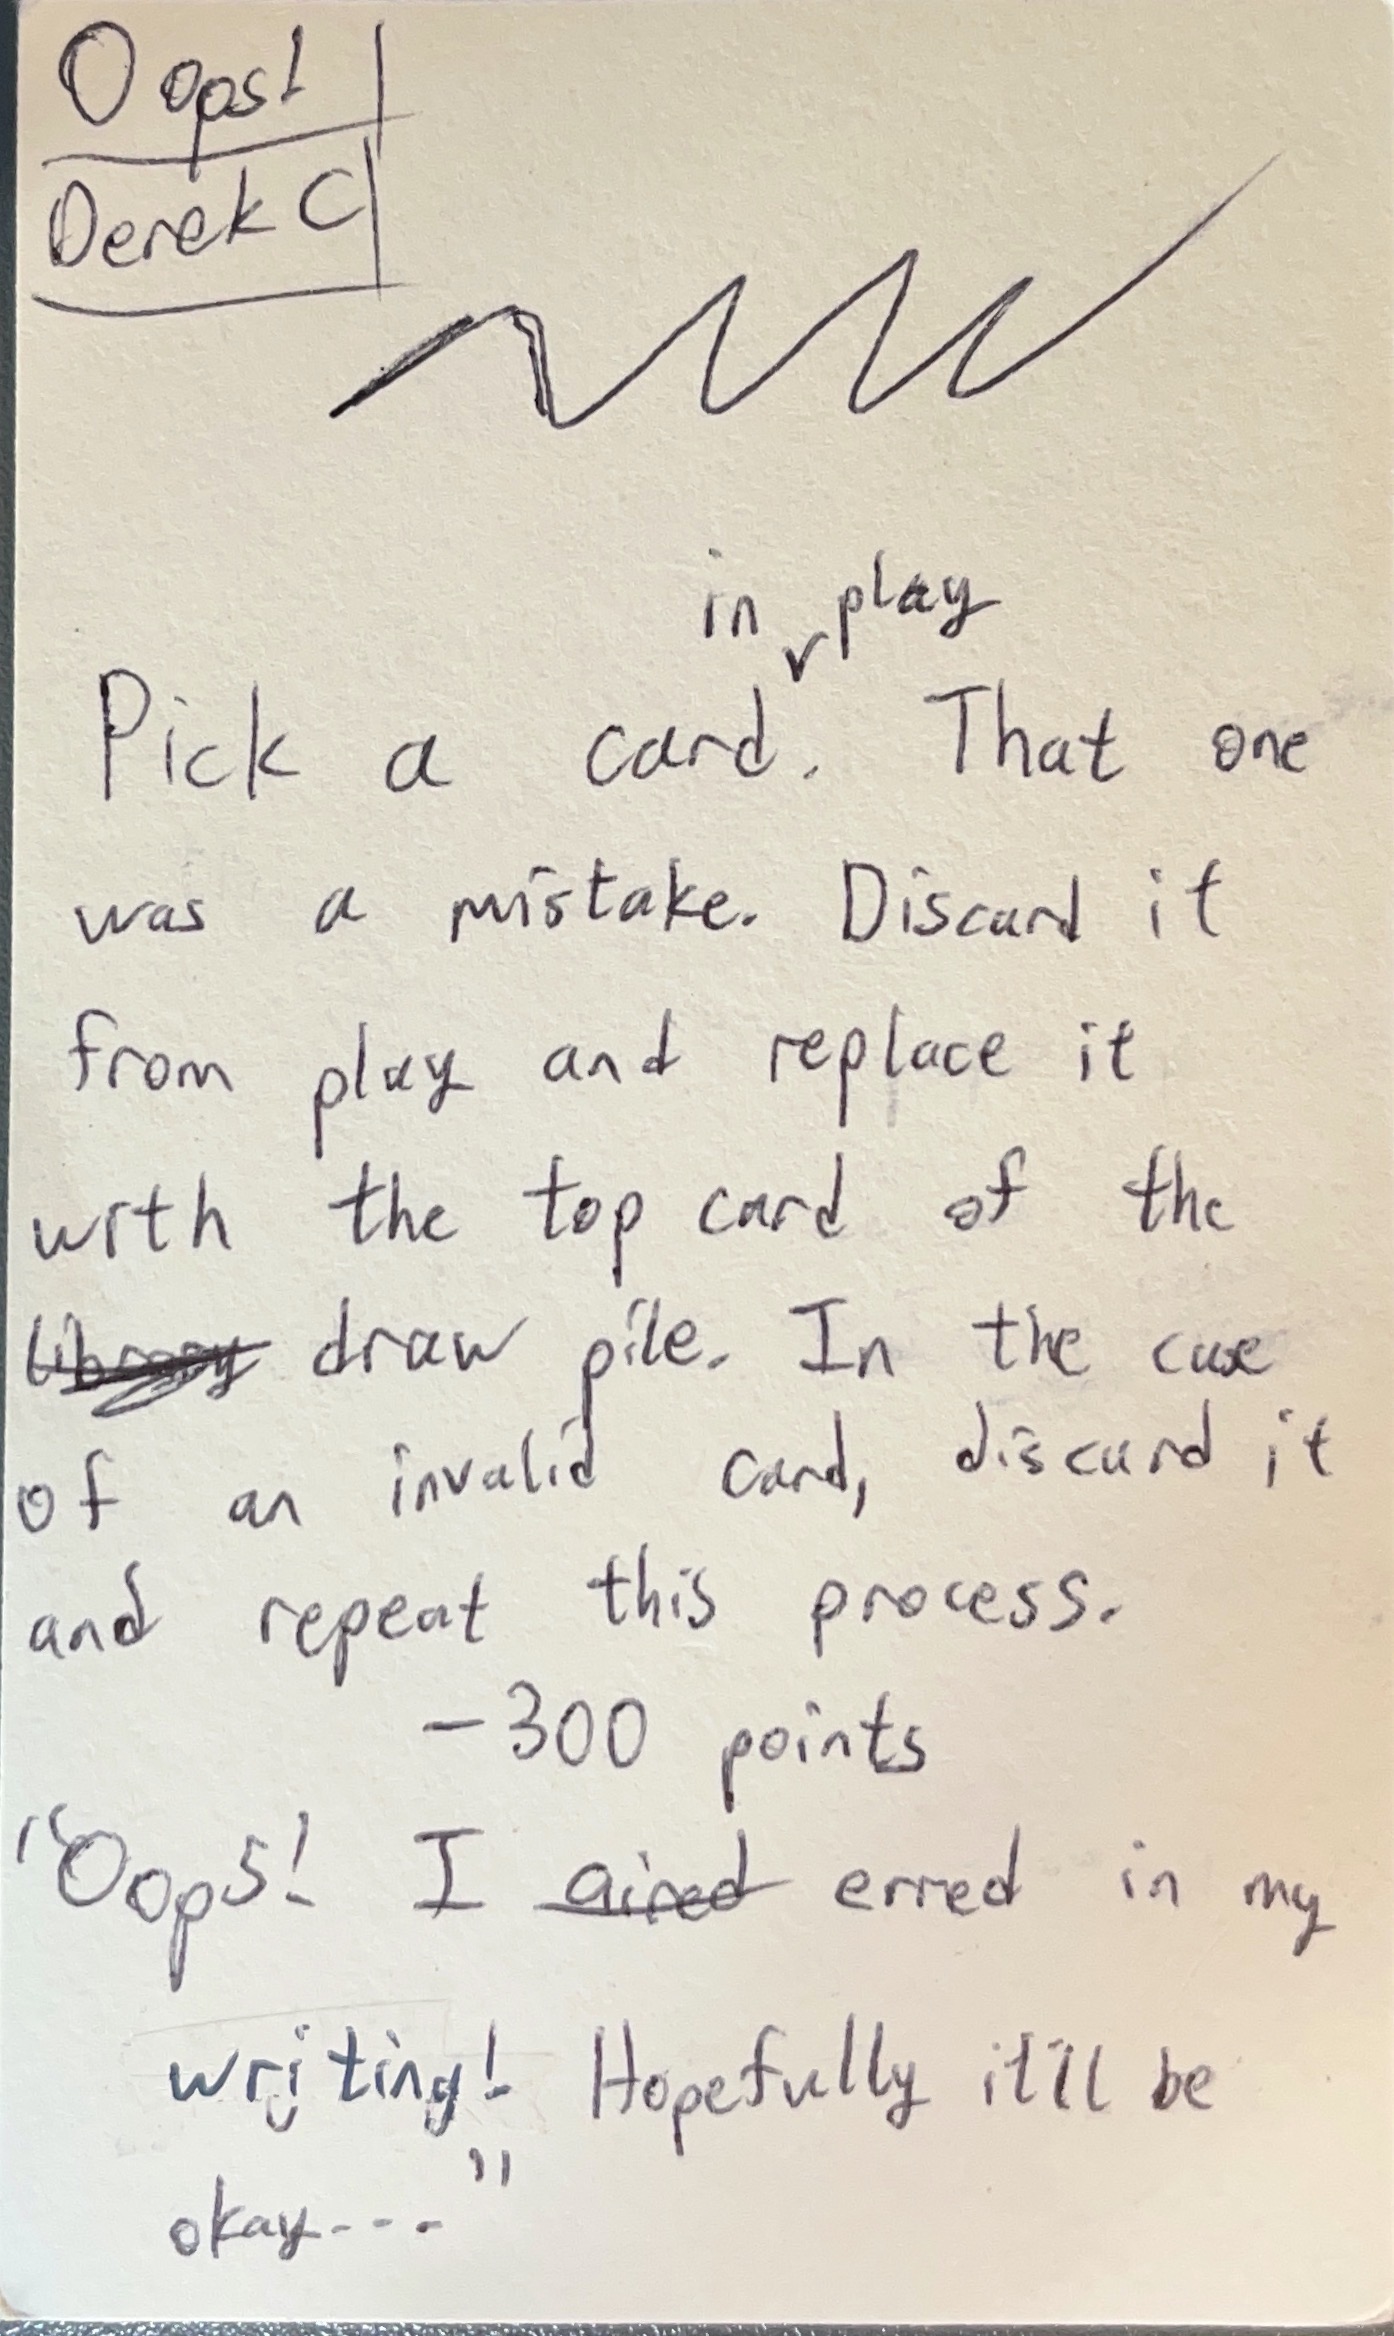 Oops!
Derek C
in play
Pick a card. That one
was a mistake. Discard it
from play and replace it
with the top card of the
library draw pile. In the case
of an invalid card, discard it
and repeat this process.
-300 points
"Oops! I aired erred in my
writing! Hopefully it'll be
okay...."